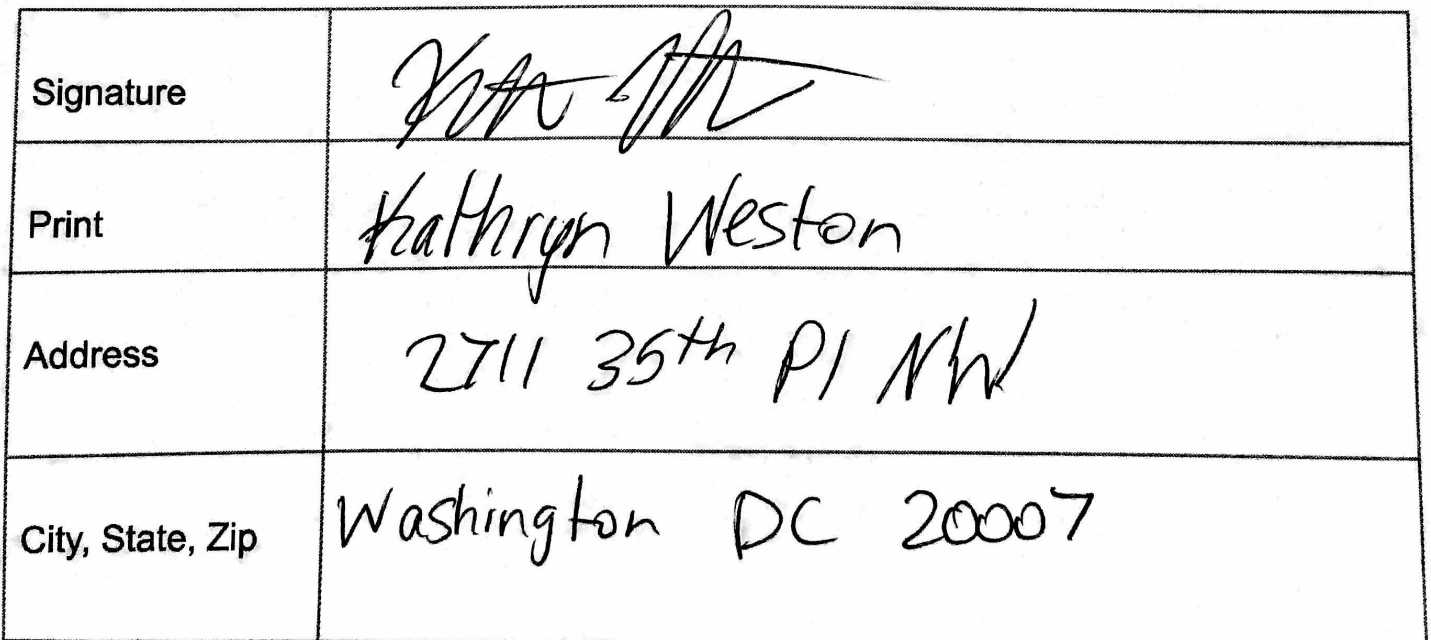 Signature
Print Kathryn Weston
Address 2711 35th Pl NW
City, State, Zip Washington DC 20007